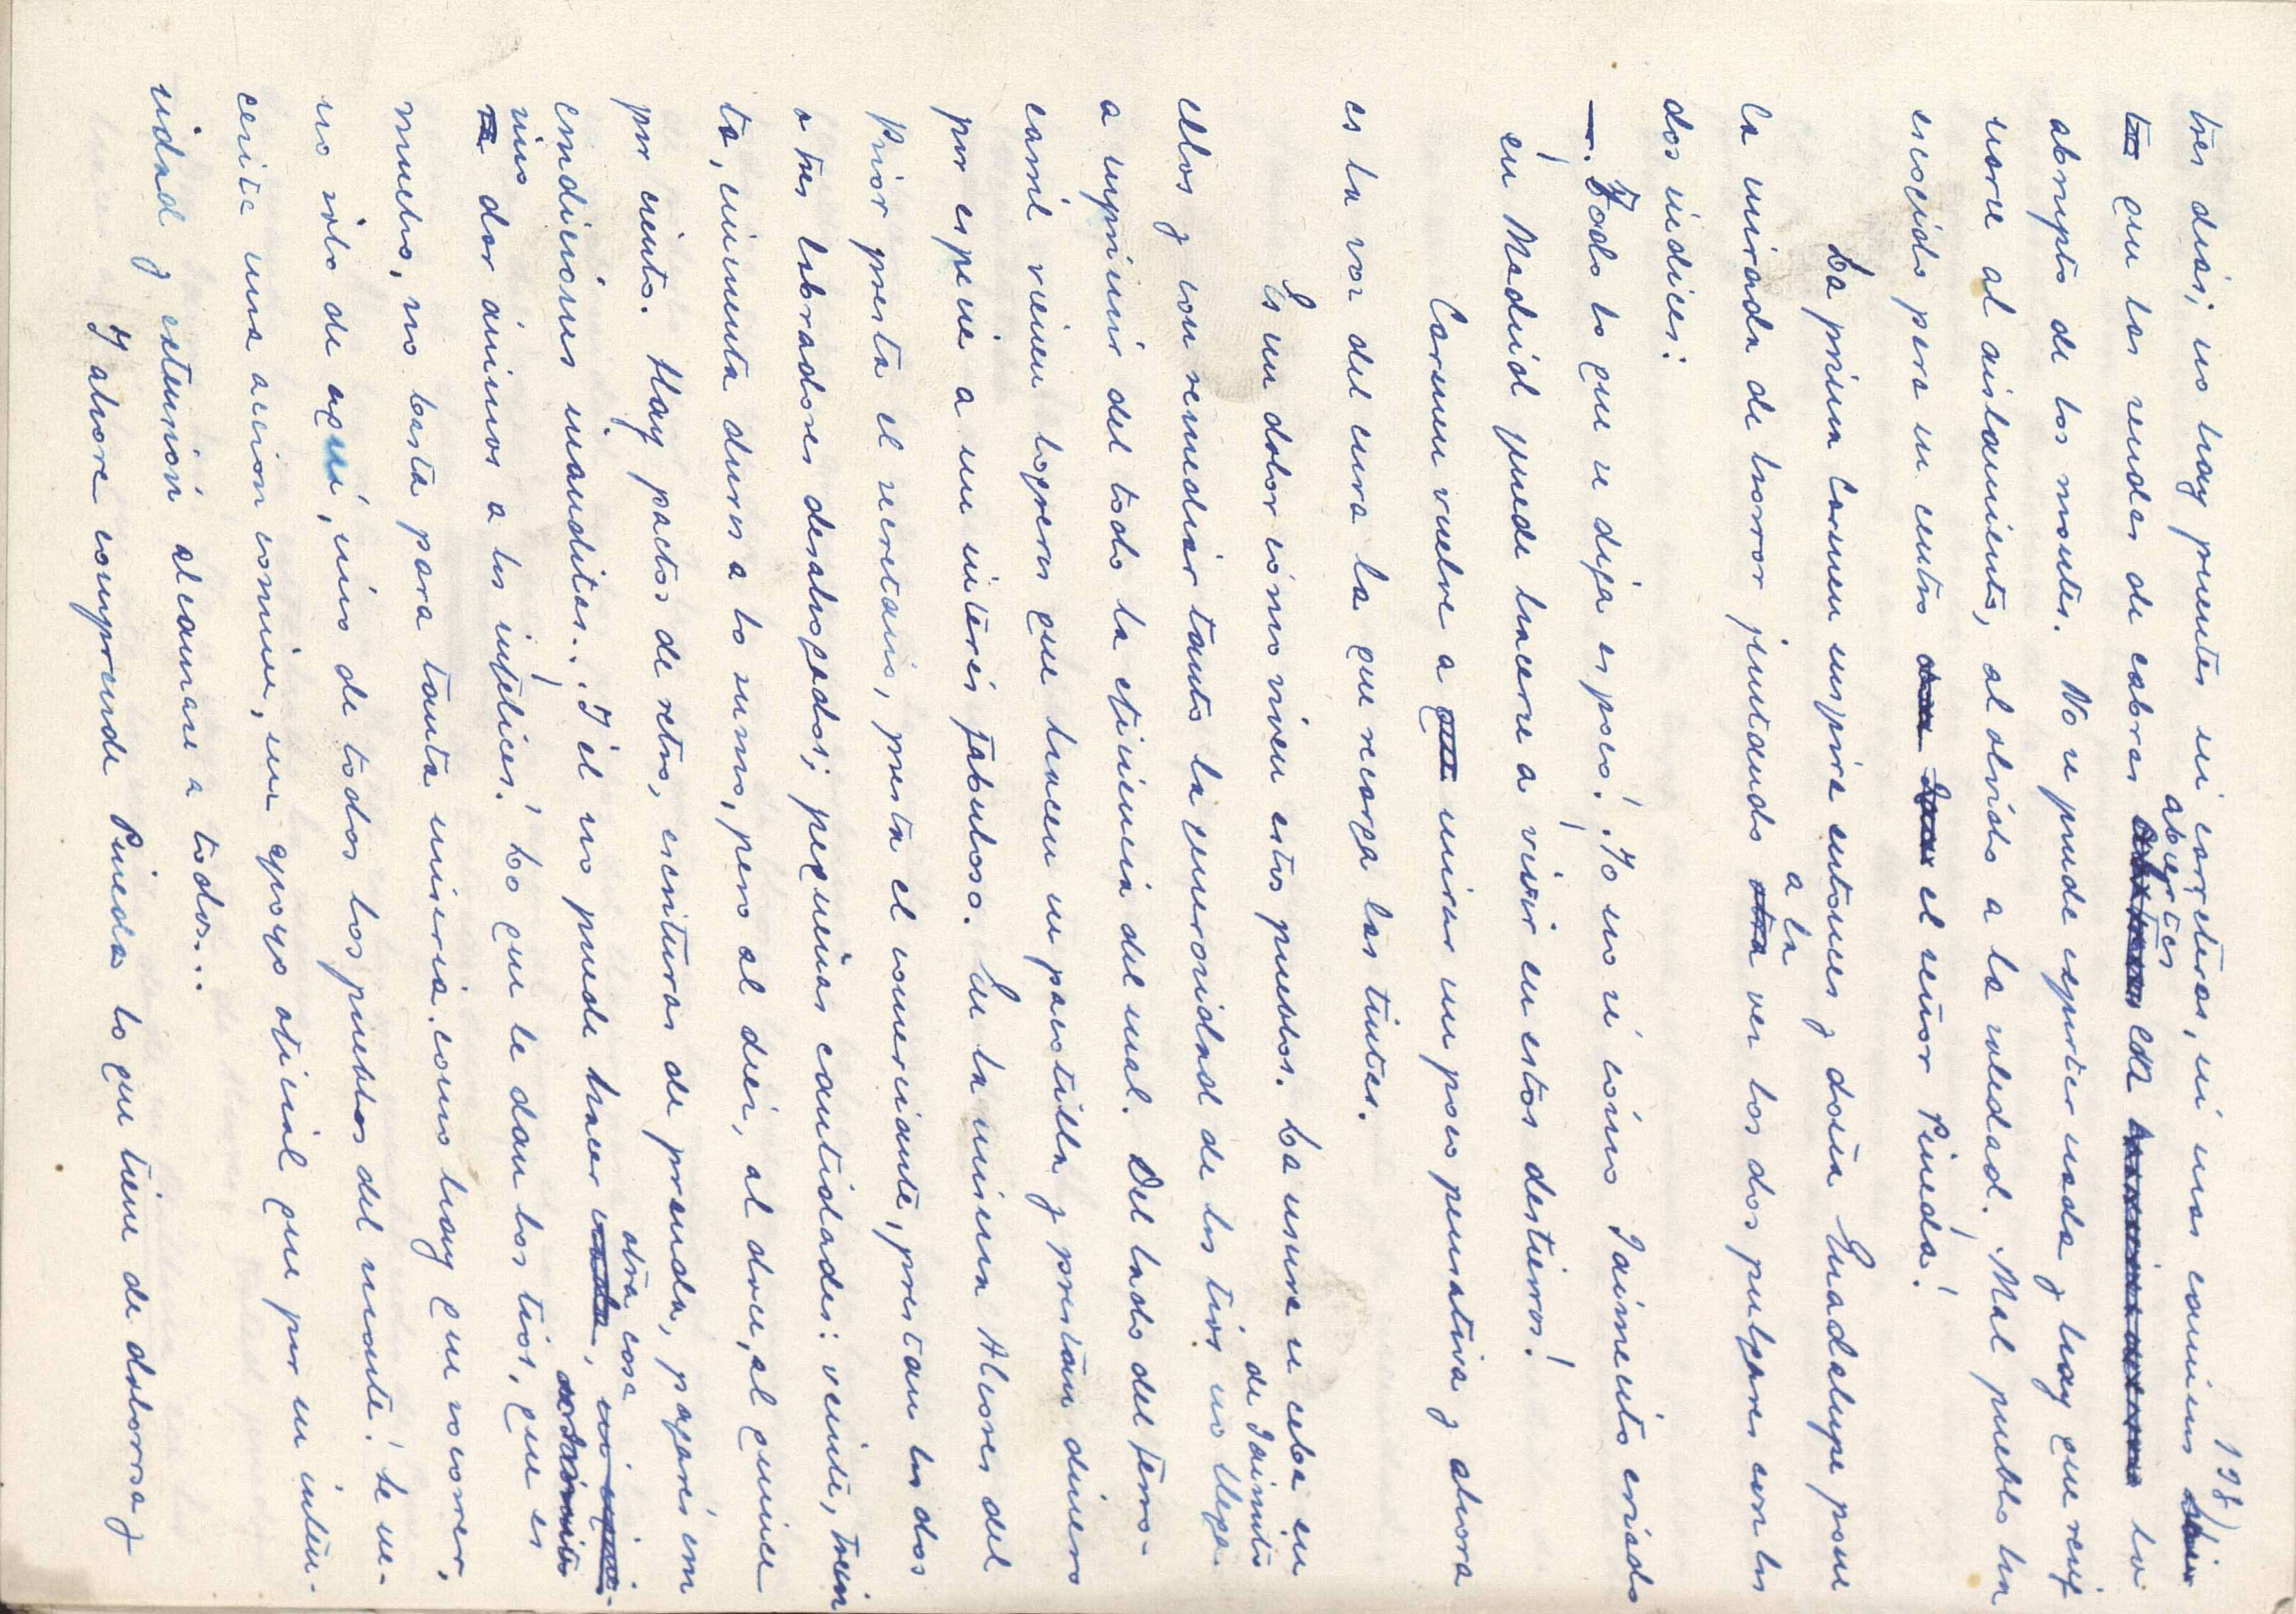 198)
tres días; no hay puentes ni carreteras, ni mas caminos
que las sendas de cabras abiertas en lo
abrupto de los montes. No se puede exportar nada y hay que resig
narse al aislamiento, al olvido a la soledad. ¡Mal pueblo ha
escogido para su centro el señor Pineda!
La prima Carmen suspira entonces y doña Guadalupe pone
la mirada de horror juntando a la vez los dos pulgares con los
dos índices:
—¡Todo lo que se diga es poco! ¡Yo no sé cómo Jaimeito criado
en Madrid puede hacerse a vivir en estos destierros!
Carmen vuelve a mirar un poco pensativa y ahora
es la voz del cura la que recarga las tintas.
Es un dolor cómo viven estos pueblos. La usura se ceba en
ellos y con remediar tanto la generosidad de los tíos de Jaimito no llega
a suprimir del todo la eficiencia del mal. Del lado del ferro-
carril vienen logreros que hacen su pacotilla y prestan dinero
por especie a un interés fabuloso. En la misma Alcores del
Prior presta el secretario, presta el comerciante, prestan los dos
o tres labradores desahogados; pequeñas cantidades: veinte, trein
ta, cincuenta duros a lo sumo, pero al diez, al doce, al quince
por ciento. Hay pactos de retro, escrituras de prenda, pagarés con
condiciones inauditas... ¡Y él no puede hacer otra cosa,
sino dar ánimos a los infelices! Lo que le dan los tíos, que es
mucho, no basta para tanta miseria como hay que socorrer,
no sólo de aquí, sino de todos los pueblos del monte! Se ne-
cesita una accion comun, un apoyo oficial que por su inten-
sidad y extensión alcanzase a todos...
Y ahora comprende Pineda lo que tiene de dolorosa y